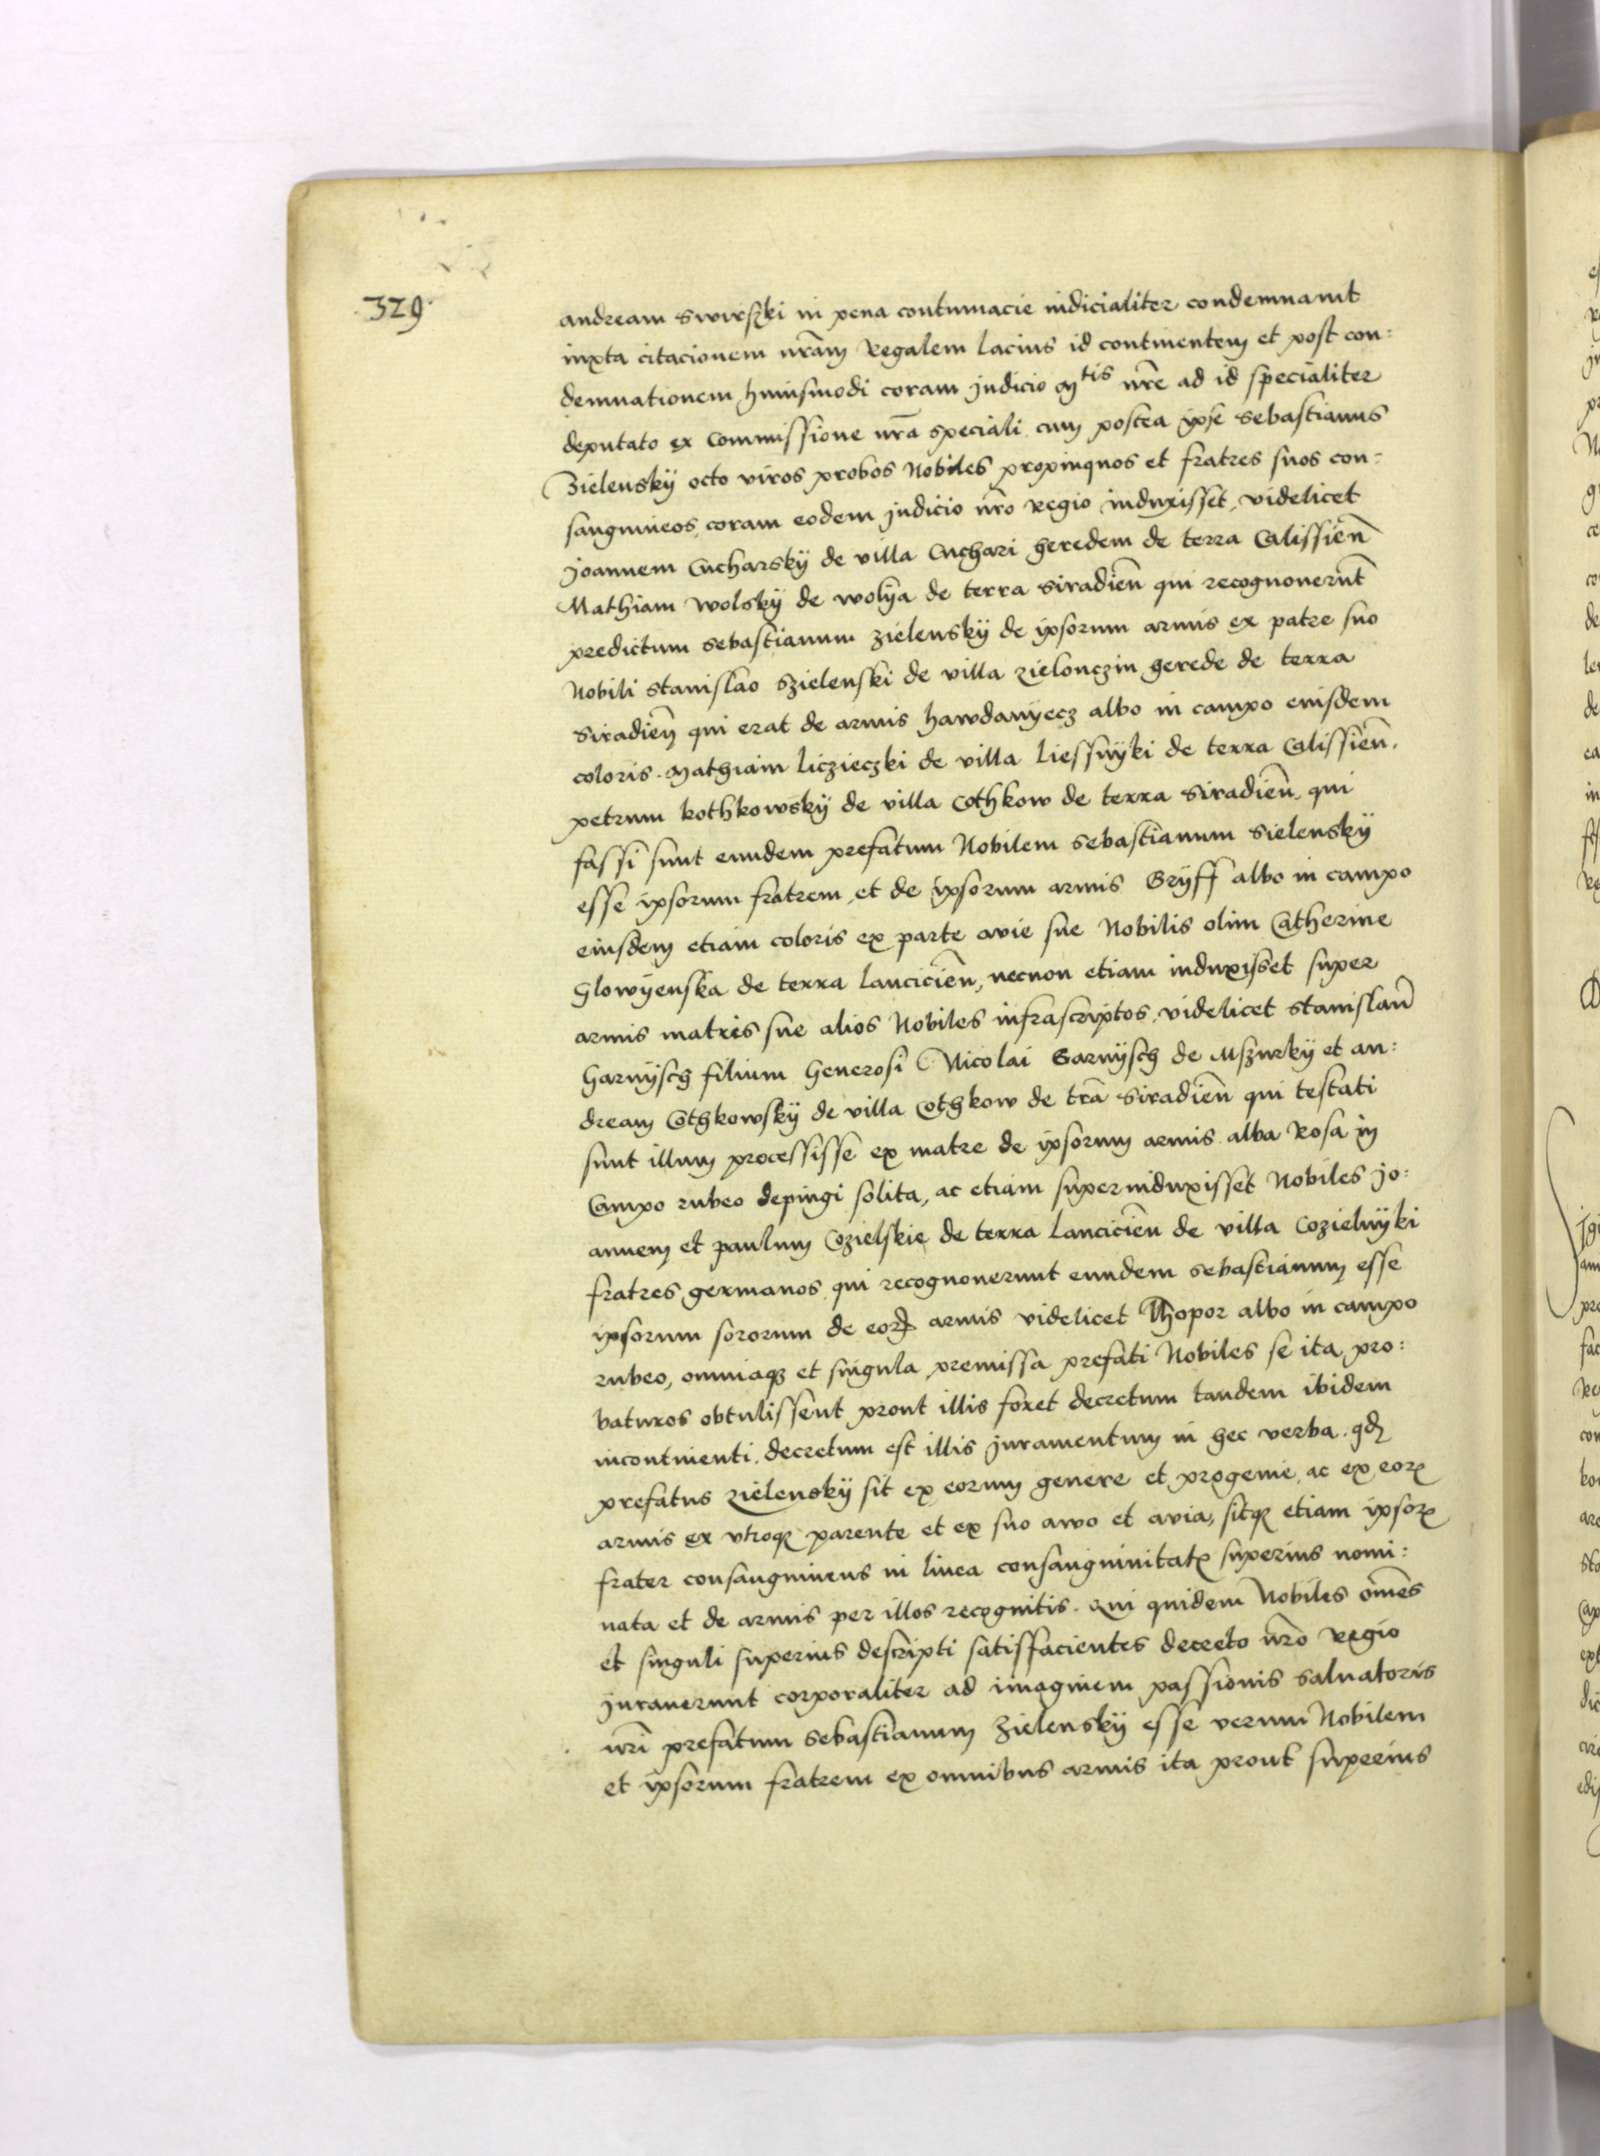 329
andream Swirski in pena contumacie iudicialiter condemnauit
iuxta citacionem nr̃am Regalem lacius id continentem et post con:
demnationem huiusmodi coram Judicio Mtis nr̃e ad id specialiter
deputato ex Commissione nr̃a speciali cum postea ipse Sebastianus
Zielenskÿ octo viros probos Nobiles propinquos et fratres suos con:
sanguineos coram eodem Judicio nr̃o Regio induxisset, videlicet
Joannem Cucharskÿ de villa Cuchari heredem de terra Calissien̄
Mathiam Wolskÿ de wolÿa de terra Siradien̄ qui recognouerunt
predictum Sebastianum Zielenskÿ de ipsorum armis ex patre suo
Nobili Stanislao Szielenski de villa Zielonczin herede de terra
Siradien̄ qui erat de armis hawdanÿecz albo in campo eiusdem
coloris. Mathiam Liczieczki de villa Liessnÿki de terra Calissien̄,
petrum kothkowskÿ de villa Cothkow de terra Siradien̄, qui
fassi sunt eundem prefatum Nobilem Sebastianum Sielenskÿ
esse ipsorum fratrem, et de ipsorum armis Grÿff albo in campo
eiusdem etiam coloris ex parte avie sue Nobilis olim Catherine
Glowÿenska de terra Lancicien̄, necnon etiam induxisset super
armis matris sue alios Nobiles infrascriptos, videlicet Stanislaū
Harnÿsch filium Generosi Nicolai Garnÿsch de Mszurkÿ et an:
dream Cothkowskÿ de villa Cothkow de tr̃a Siradien̄ qui testati
sunt illum processisse ex matre de ipsorum armis alba Rosa in
Campo rubeo depingi solita, ac etiam superinduxisset Nobiles Jo:
annem et paulum Cozielskie de terra Lancicien̄ de villa Cozielnÿki
fratres germanos qui recognouerunt eundem Sebastianum esse
ipsorum sororum de eorꝝ armis videlicet Thopor albo in campo
rubeo, omniaqꝫ et singula premissa prefati Nobiles se ita pro:
baturos obtulissent prout illis foret decretum tandem ibidem
incontinenti decretum est illis Juramentum in hec verba. qđ
prefatus Zielenskÿ sit ex eorum genere et progenie, ac ex eorꝝ
armis ex vtroqꝫ parente et ex suo avo et avia, sitqꝫ etiam ipsorꝝ
frater consanguineus in linea consanguinitatꝭ superius nomi:
nata et de armis per illos recognitis. Qui quidem Nobiles om̄es
et singuli superius descripti satisfacientes decreto nr̃o Regio
Jurauerunt corporaliter ad imaginem passionis Saluatoris
nr̃i prefatum Sebastianum Zielenskÿ esse verum Nobilem
et ipsorum fratrem ex omnibus armis ita prout superius